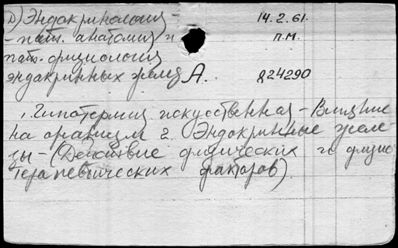 д) Эндокринология 14.2.61.
- пат. анатомия и п.м.
пат. физиология
эндокринных желез А. 824290
1. Гипотермия искусственная - Влияние
на организм 2. Эндокринные желе-
зы - (Действие физических и физио
терапевтических факторов).